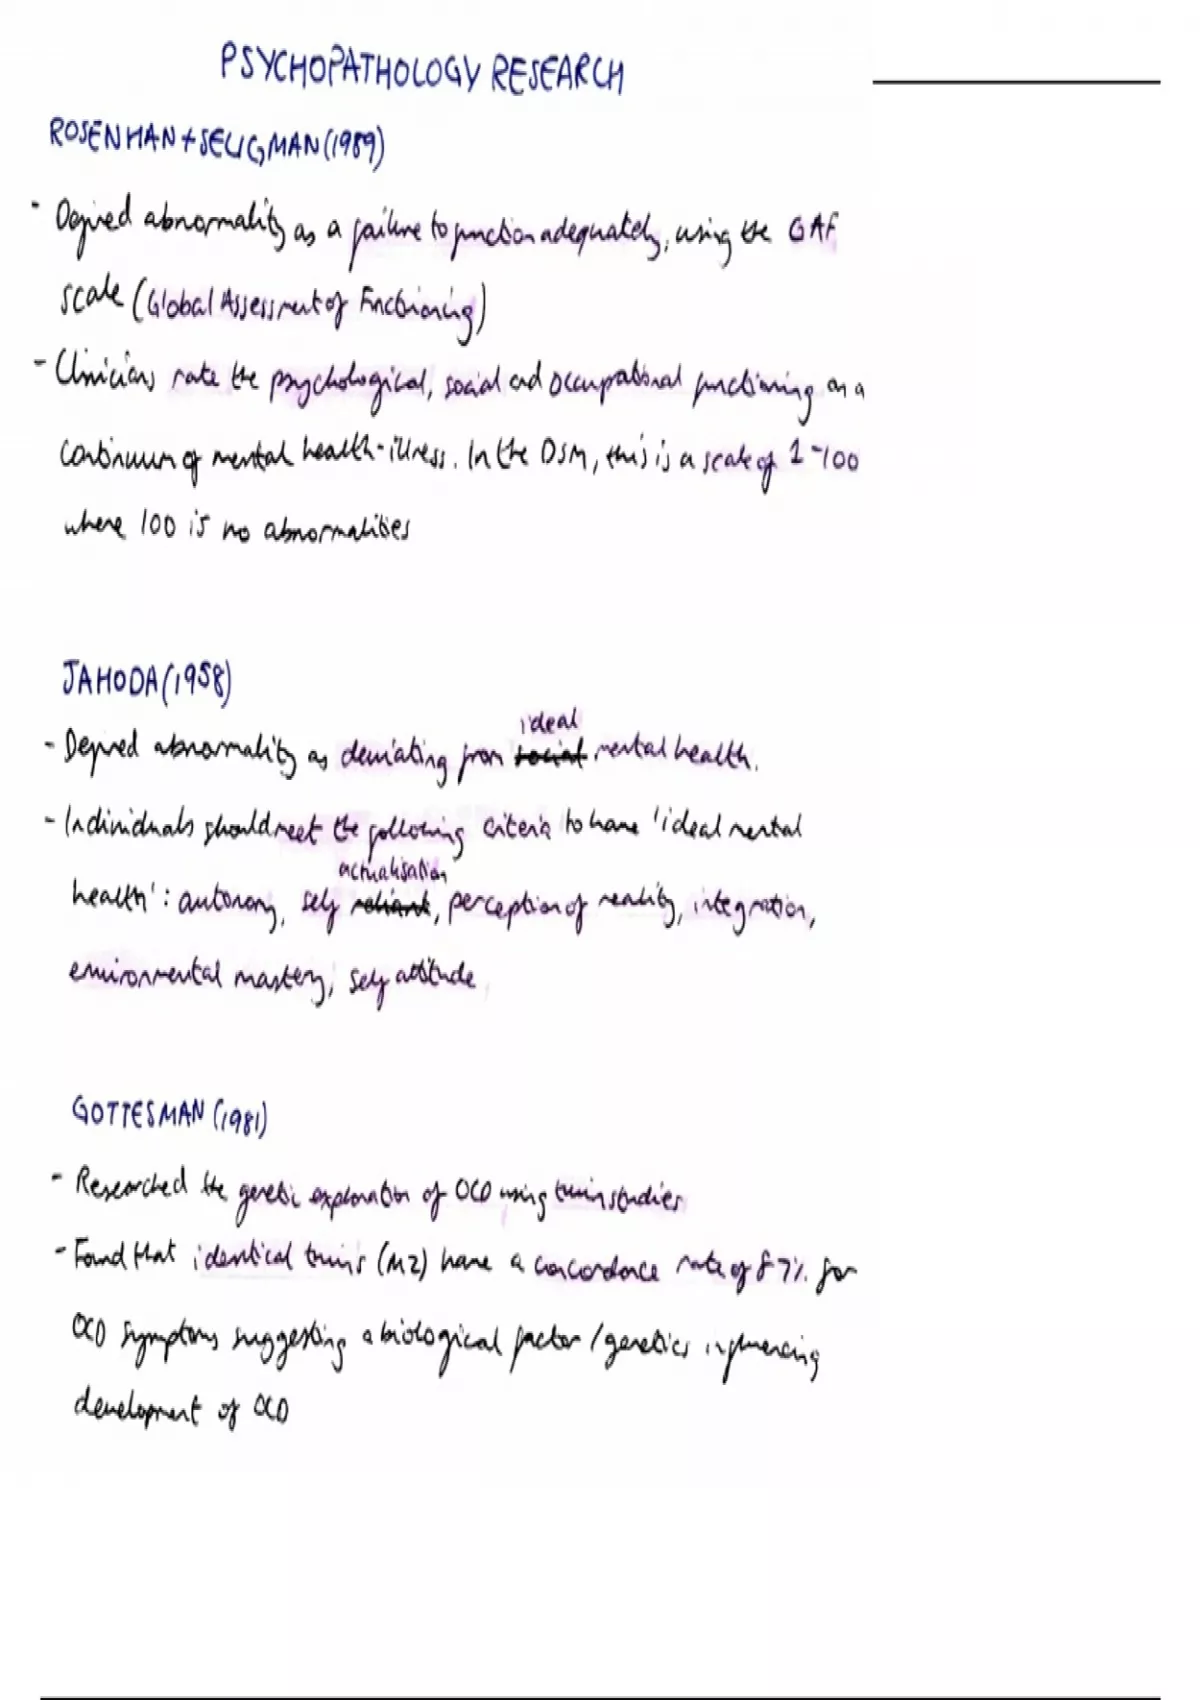 PSYCHOPATHOLOGY RESEARCH
ROSENHAN + SELIGMAN (1989)
- Defined abnormality as a failure to function adequately, using the GAF
scale (Global Assessment of Functioning)
- Clinicians rate the psychological, social and occupational functioning on a
continuum of mental health-illness. In the DSM, this is a scale of 1-100
where 100 is no abnormalities
JAHODA (1958)
ideal
- Defined abnormality as deviating from social mental health.
- Individuals should meet the following criteria to have 'ideal mental
actualisation
health': autonomy, self reliant, perception of reality, integration,
environmental mastery, self attitude
GOTTESMAN (1981)
- Researched the genetic explanation of OCD using twin studies
- Found that identical twins (MZ) have a concordance rate of 87% for
OCD symptoms suggesting a biological factor / genetics influencing
development of OCD